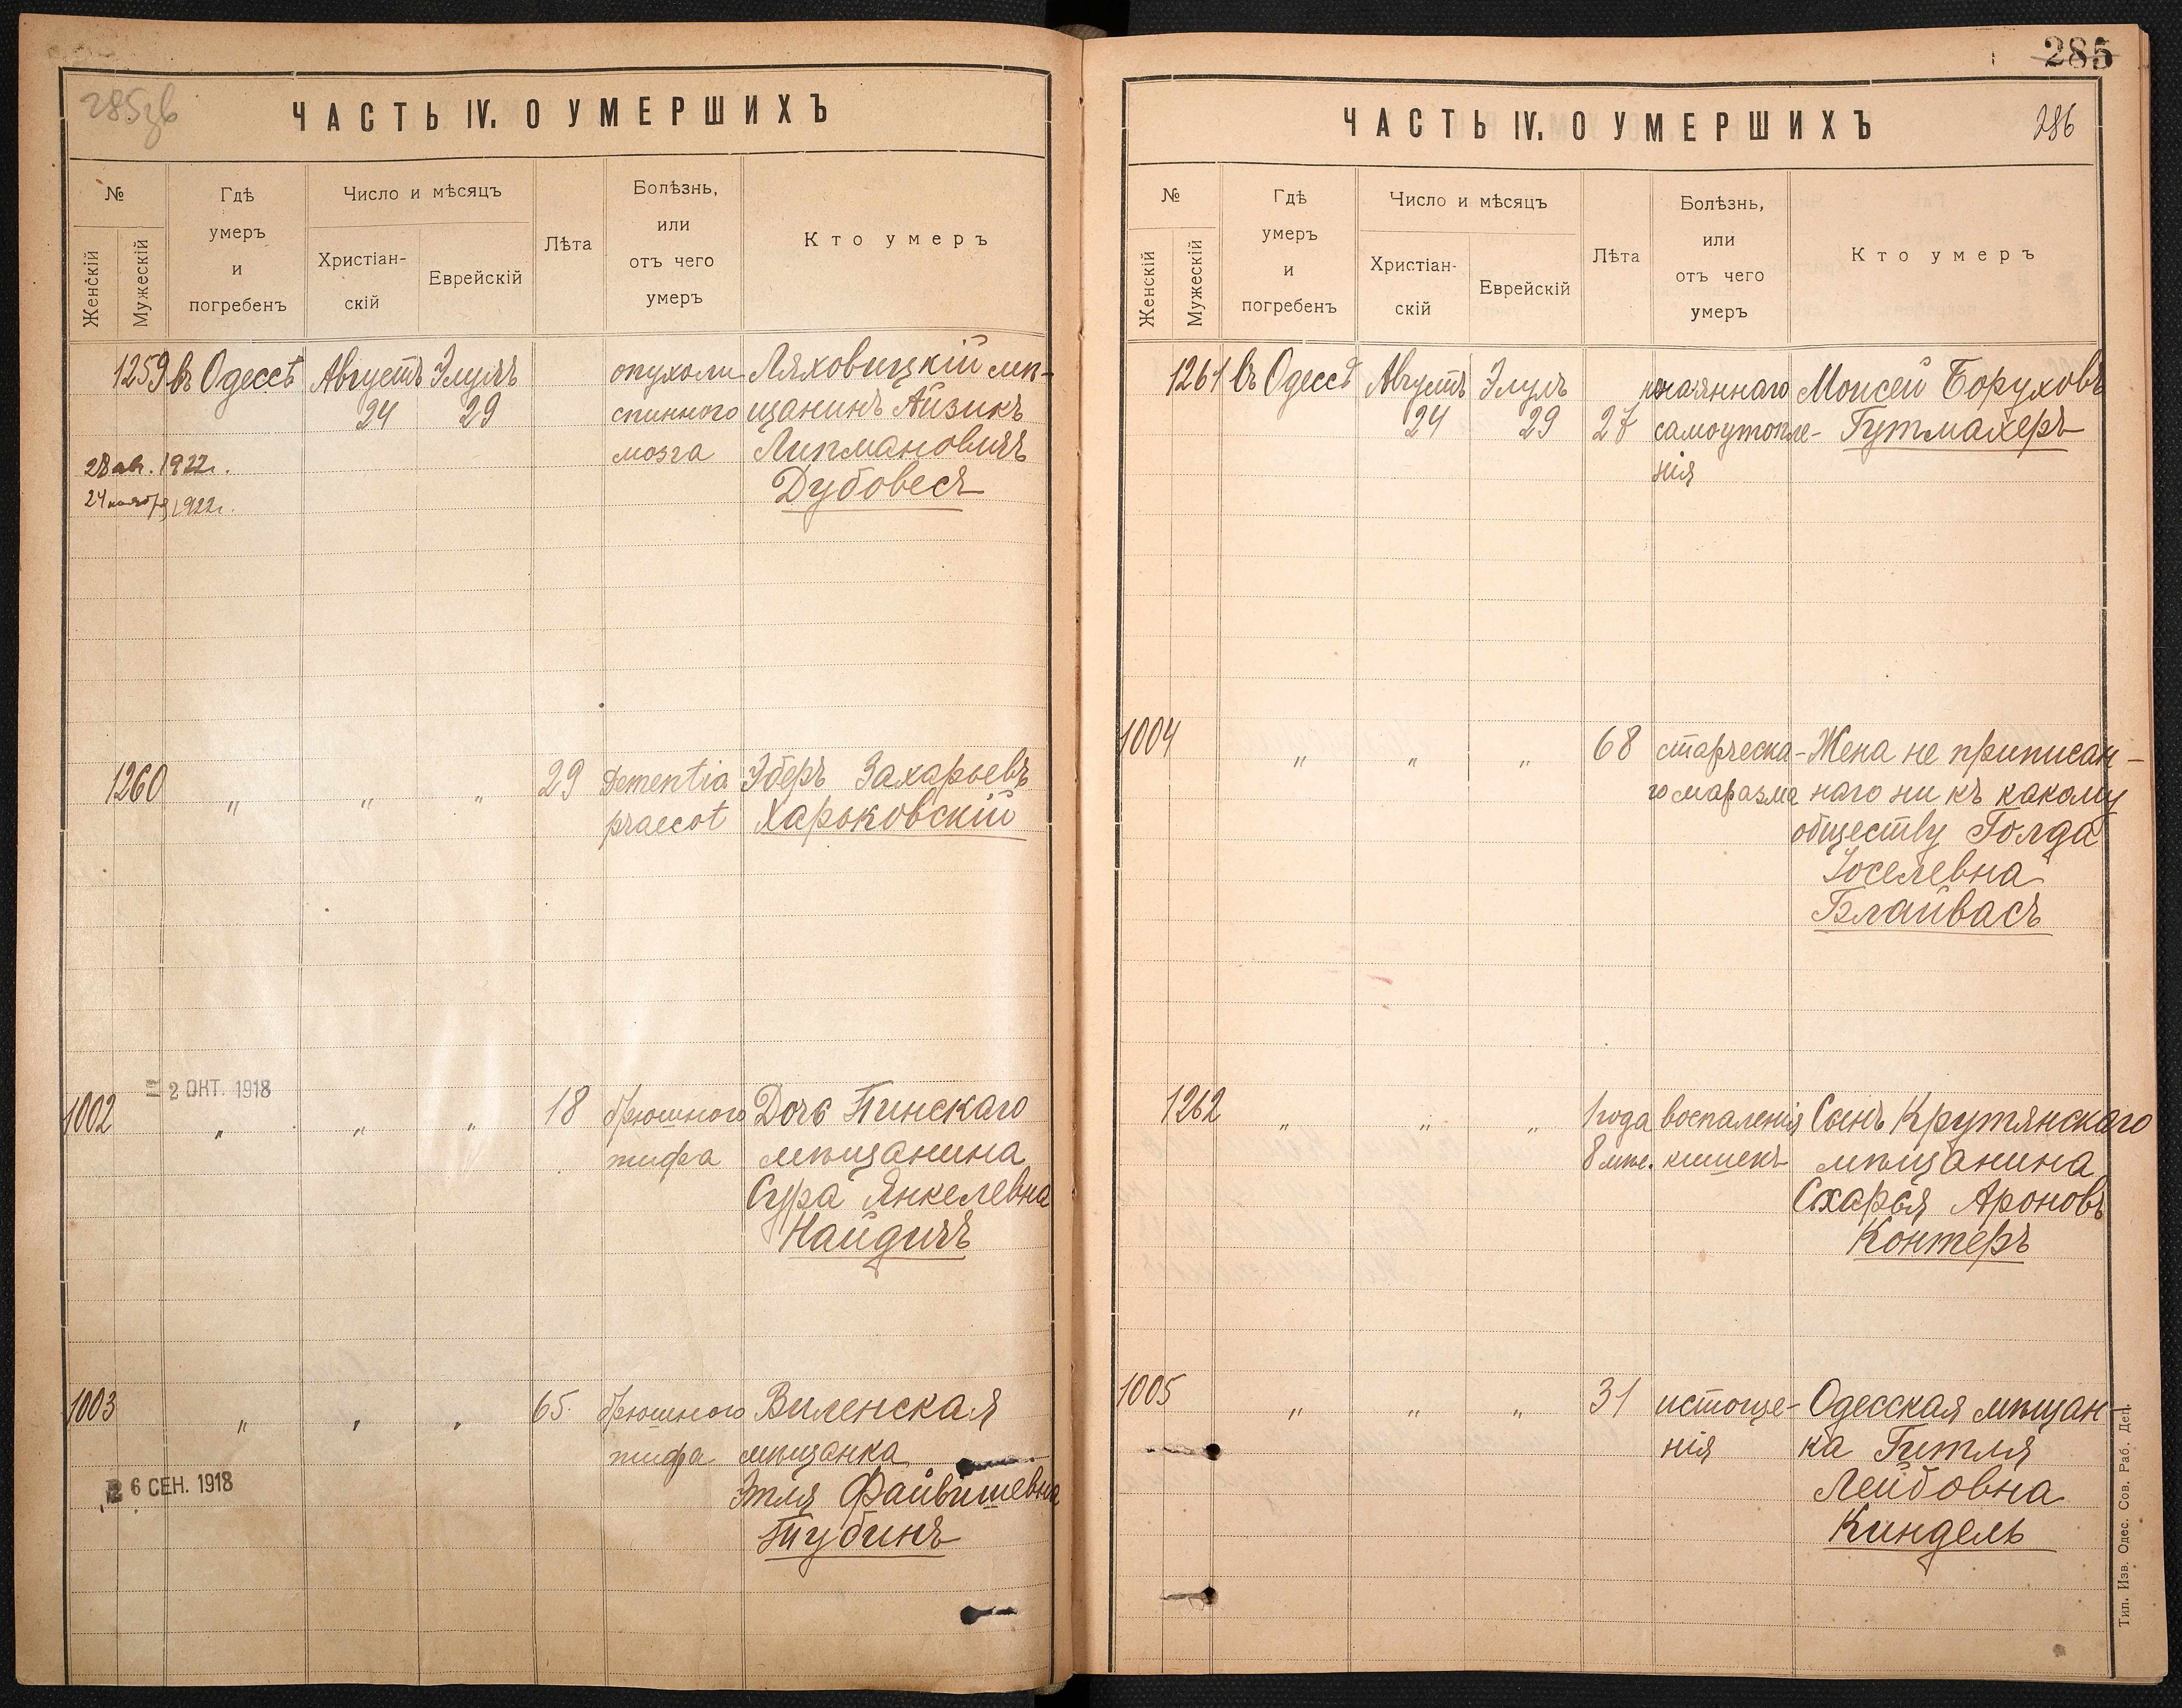 285зв
ЧАСТЬ IV. О УМЕРШИХЪ
№
Женскій
Мужескій
Гдѣ
умеръ
и
погребенъ
Число и мѣсяцъ
Христіан-
скій
Еврейскій
Лѣта
Болѣзнь,
или
отъ чего
умеръ
Кто умеръ
1259 въ Одессѣ Августъ Элулъ опухоли Ляховицкій мѣ-
24 29 спинного щанинъ Айзикъ
мозга Липмановичъ
Дубовесъ
28 авг. 1922г.
24 ноября 1922г.
1260 " " " 29 Dementia Эберъ Захарьевъ
praecot Харьковскій
2 ОКТ. 1918
1002 " " " 18 брюшного Дочь Пинскаго
тифа мѣщанина
Сура Янкелевна
Найдичъ
1003 " " " 65. брюшного Виленская
тифа мѣщанка
Этля Файвишевна
Тубинъ
26 СЕН. 1918
285
286
ЧАСТЬ IV. О УМЕРШИХЪ
№
Женскій
Мужескій
Гдѣ
умеръ
и
погребенъ
Число и мѣсяцъ
Христіан-
скій
Еврейскій
Лѣта
Болѣзнь,
или
отъ чего
умеръ
Кто умеръ
1261 въ Одессѣ Августъ Элулъ Моисей Боруховъ
24 29 самоутопле- Гутмахеръ
нія
1004 " " " 68 старческа- Жена не приписан-
го маразма наго ни къ какому
обществу Голда
Іоселевна
Блайвасъ
1262 " " " 1 года воспаленія Сынъ Крутянскаго
8 мѣс. кишекъ мѣщанина
Схарья Ароновъ
Контеръ
1005 " " " 31 истоще- Одесская мѣщан-
нія ка Гитля
Лейбовна
Киндель
Тип. Изв. Одес. Сов. Раб. Деп.